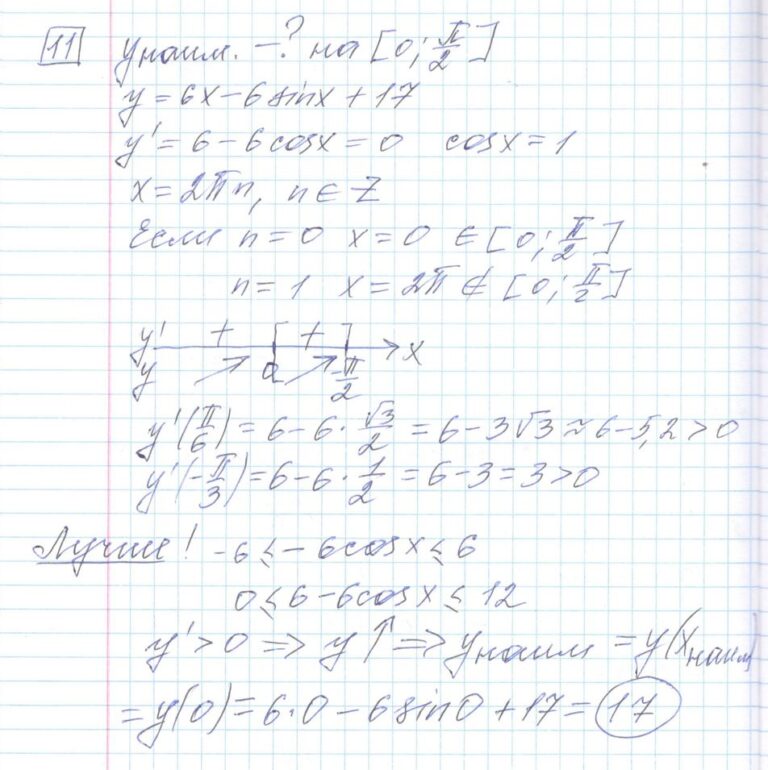 11 yнаим. - ? на [0; π/2]
y = 6x - 6 sinx + 17
y' = 6 - 6cosx = 0 cosx = 1
x = 2πn, n ∈ Z
Если n = 0 x = 0 ∈ [0; π/2]
n = 1 x = 2π ∉ [0; π/2]
y' + [ + ] x
y 0 π/2
y'(π/6) = 6 - 6 · √3/2 = 6 - 3√3 ≈ 6 - 5,2 > 0
y'(-π/3) = 6 - 6 · 1/2 = 6 - 3 = 3 > 0
Лучше! -6 ≤ -6cosx ≤ 6
0 ≤ 6 - 6cosx ≤ 12
y' > 0 => y ↑ => yнаим = y(xнаим)
= y(0) = 6·0 - 6 sin0 + 17 = 17